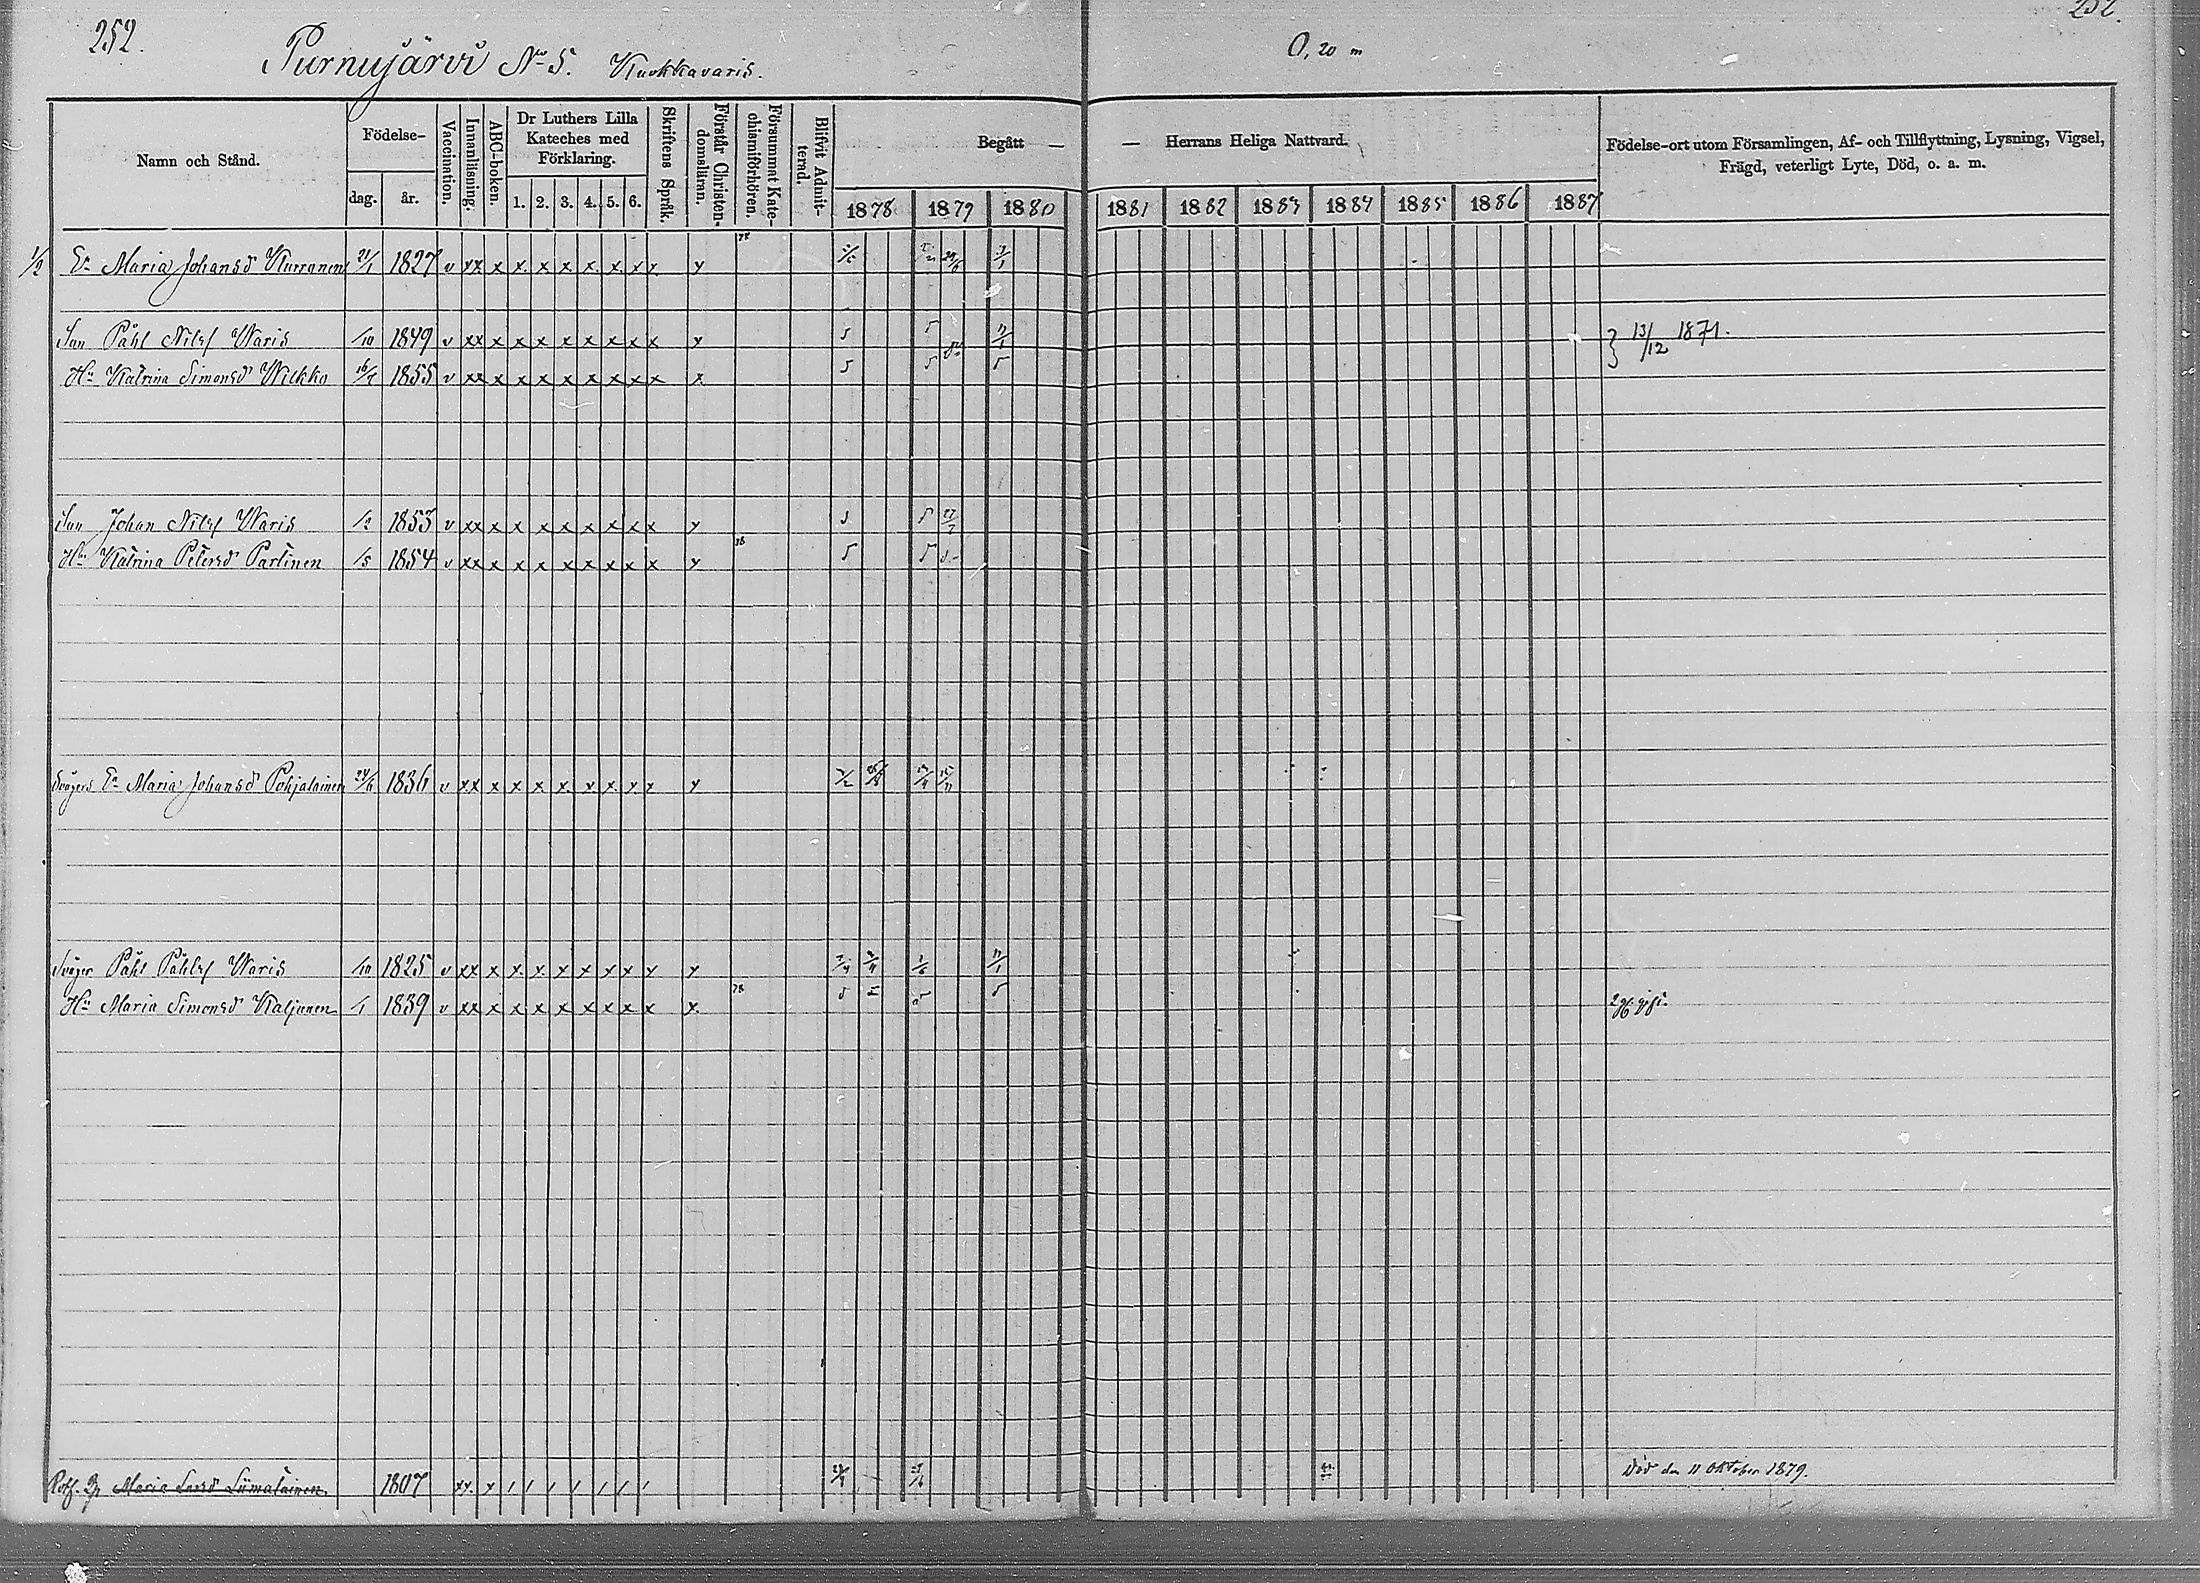 252.
252.
Purnujärvi No 5. Kuokkavaris.
0,20 m
Namn och Stånd.
Födelse-
dag.
år.
Vaccination.
Innanläsning.
ABC-boken.
Dr Luthers Lilla Kateches med Förklaring.
1. 2. 3. 4. 5. 6.
Skriftens Språk.
Förstår Christen-domsläran.
Försummat Kate-chismiförhören.
Blifvit Admit-terad.
Begått —
— Herrans Heliga Nattvard.
1878 1879 1880 1881 1882 1883 1884 1885 1886 1887
Födelse-ort utom Församlingen, Af- och Tillflyttning, Lysning, Vigsel, Frägd, veterligt Lyte, Död, o. a. m.
1/2 Ea Maria Johansd Kurronen 21/1 1827 v xx x x x x x x x x x
78
Son Påhl Nilsf Waris /10 1849 v xx x x x x x x x x x
} 13/12 1871.
Hu Katrina Simonsd Wilkko 1855 v xx x x x x x x x x x
Son Johan Nilsf Waris /2 1853 v xx x x x x x x x x x
Hu Katrina Petersd Partinen /5 1854 v xx x x x x x x x x x
Svågers Ea Maria Johansd Pohjalainen 24/6 1836 v xx x x x x x x x x x
Svåger Påhl Påhlsf Waris /10 1825 v xx x x x x x x x x x
Hu Maria Simonsd Kaljunen /1 1839 v xx x x x x x x x x x
78
2 gg gift.
Maria Larsd Liimatainen 1807 xx x / / / / / / /
Död den 11 Oktober 1879.